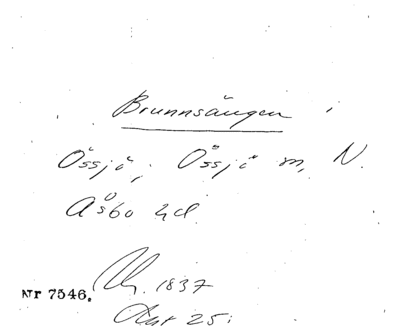 Brunnsängen
Össjö, Össjö m, N.
Åsbo hd.
1837
Nr 7546.
Akt 25